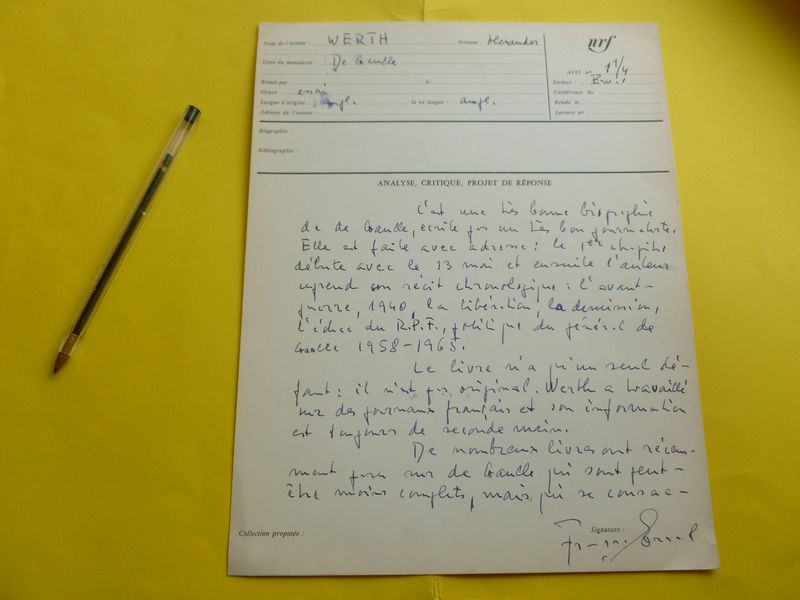 Nom de l'auteur : WERTH Prénom : Alexander
nrf
Titre du manuscrit : De Gaulle
AVIS n°
Remis par : le
Lecteur :
Genre : essai
Conférence du
Langue d'origine : angl. lu en langue : angl.
Rendu le
Adresse de l'auteur :
Lecture n° :
Biographie :
Bibliographie :
ANALYSE, CRITIQUE, PROJET DE RÉPONSE
C'est une très bonne biographie
de de Gaulle, écrite par un très bon journaliste.
Elle est faite avec adresse : le 1er chapitre
débute avec le 13 mai et ensuite l'auteur
reprend son récit chronologique : l'avant-
guerre, 1940, la libération, la démission,
l'échec du R.P.F., politique du général de
Gaulle 1958-1965.
Le livre n'a qu'un seul dé-
faut : il n'est pas original. Werth a travaillé
sur des journaux français et son information
est toujours de seconde main.
De nombreux livres ont récem-
ment paru sur de Gaulle qui sont peut-
être moins complets, mais qui se consac-
Collection proposée :
Signature :